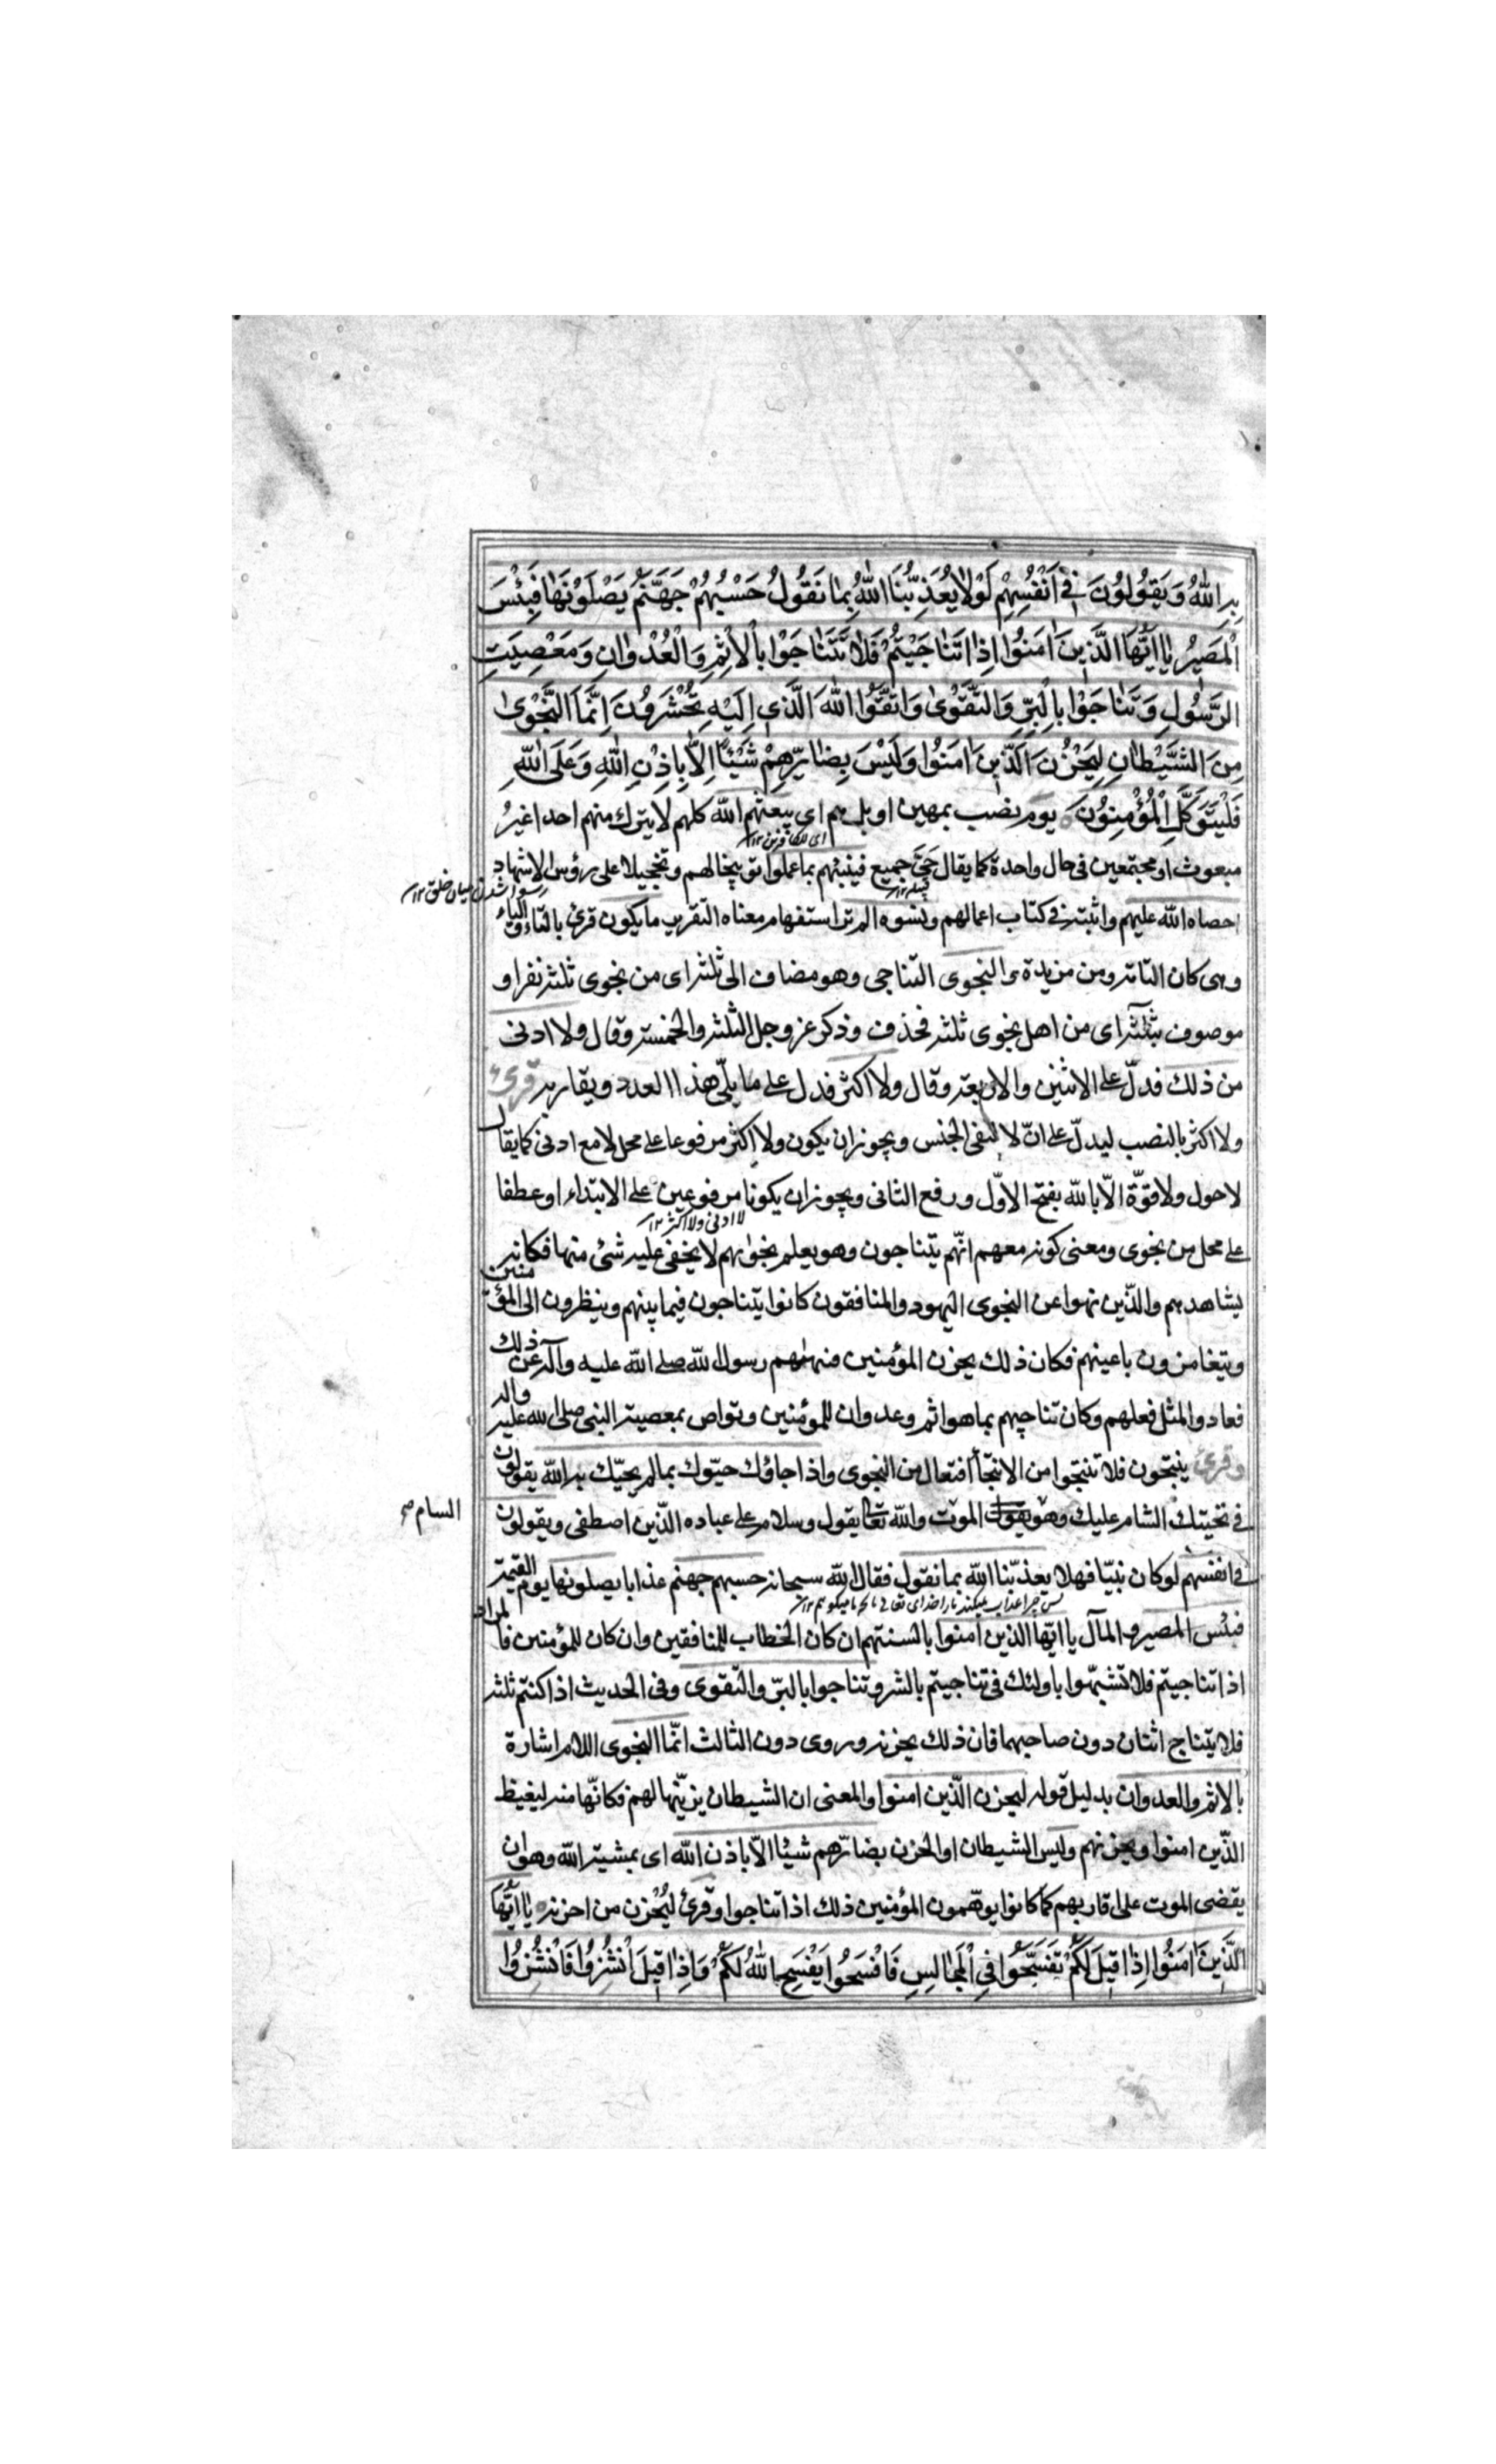 بِهِ اللّٰهُ وَيَقُولُونَ فِي أَنْفُسِهِمْ لَوْلَا يُعَذِّبُنَا اللّٰهُ بِمَا نَقُولُ حَسْبُهُمْ جَهَنَّمُ يَصْلَوْنَهَا فَبِئْسَ
الْمَصِيرُ يَا اَيُّهَا الَّذِينَ اٰمَنُوا اِذَا تَنَاجَيْتُمْ فَلَا تَتَنَاجَوْا بِالْاِثْمِ وَالْعُدْوَانِ وَمَعْصِيَتِ
الرَّسُولِ وَتَنَاجَوْا بِالْبِرِّ وَالتَّقْوٰى وَاتَّقُوا اللّٰهَ الَّذِي اِلَيْهِ تُحْشَرُونَ اِنَّمَا النَّجْوٰى
مِنَ الشَّيْطَانِ لِيَحْزُنَ الَّذِينَ اٰمَنُوا وَلَيْسَ بِضَارِّهِمْ شَيْئًا اِلَّا بِاِذْنِ اللّٰهِ وَعَلَى اللّٰهِ
فَلْيَتَوَكَّلِ الْمُؤْمِنُونَ يوم نصب بمهين او بلهم اي يبعثهم الله كلهم لا يترك منهم احدا غيرُ
اى للكافرين ١٢
مبعوث او مجتمعين فى حال واحدة كما يقال حَيّ جميع فينبئهم بما عملوا توبيخا لهم وتخجيلا على رؤس الاشهاد
رسوا شدن ميان خلق ١٢
احصاه الله عليهم واثبته فى كتاب اعمالهم ونسوه الم تر استفهام معناه التقرير ما يكون قرئ بالتاء والياء
وهى كان التامة ومن مزيدة والنجوى التناجى وهو مضاف الى ثلثة اى من نجوى ثلثة نفر او
موصوف بثلثة اى من اهل نجوى ثلثة فحذف وذكر عز وجل الثلثة والخمسة وقال ولا ادنى
من ذلك فدلّ على الاثنين والاربعة وقال ولا اكثر فدل على ما يلى هذا العدد ويقاربه قرئ
ولا اكثر بالنصب ليدلّ على انّ لا لنفى الجنس ويجوز ان يكون ولا اكثر مرفوعا على محل لا مع ادنى كما يقال
لا حول ولا قوّة الّا بالله بفتح الاوّل ورفع الثانى ويجوز ان يكونا مرفوعين على الابتداء او عطفا
لا ادنى ولا اكثر ١٢
على محل من نجوى ومعنى كونه معهم انّهم يتناجون وهو يعلم نجواهم لا يخفى عليه شئ منها فكانه
يشاهدهم والّذين نهوا عن النجوى اليهود والمنافقون كانوا يتناجون فيما بينهم وينظرون الى المؤمنين
ويتغامزون باعينهم فكان ذلك يحزن المؤمنين فنهاهم رسول الله صلى الله عليه وآله عن ذلك
فعادوا لمثل فعلهم وكان تناجيهم بما هو اثم وعدوان للمؤمنين وتواص بمعصية النبى صلى الله عليه واله
وقرئ ينتجون فلا تنتجوا من الانتجاء افتعال من النجوى واذا جاؤك حيّوك بما لم يحيّك به الله يقولون
فى تحيتك الشام عليك وهو الموت والله تعالى يقول وسلام على عباده الّذين اصطفى ويقولون
السام صح
فى انفسهم لو كان نبيّا فهلا يعذبّنا الله بما نقول فقال الله سبحانه حسبهم جهنم عذابا يصلونها يوم القيمة
پس چرا عذاب نميكند مارا خداى تعالى بانچه ما ميگوئيم ١٢
فبئس المصير والمآل يا ايّها الذين امنوا بالسنتهم ان كان الخطاب للمنافقين وان كان للمؤمنين فالمراد
اذا تناجيتم فلا تتشبّهوا باولئك فى تناجيتم بالشر وتناجوا بالبرّ والتقوى وفى الحديث اذا كنتم ثلثة
فلا يتناج اثنان دون صاحبهما فان ذلك يحزنه وروى دون الثالث انّما النجوى اللام اشارة
بالاثم والعدوان بدليل قوله ليحزن الّذين امنوا والمعنى ان الشيطان يزيّنها لهم فكانّها منه ليغيظ
الذّين امنوا ويحزنهم وليس الشيطان او الحزن بضارّهم شيئا الّا باذن الله اى بمشية الله وهو ان
يقضى الموت على اقاربهم كما كانوا يوهّمون المؤمنين ذلك اذا تناجوا وقرئ ليُحْزِن من احزنه يَا اَيُّهَا
الَّذِينَ اٰمَنُوا اِذَا قِيلَ لَكُمْ تَفَسَّحُوا فِي الْمَجَالِسِ فَافْسَحُوا يَفْسَحِ اللّٰهُ لَكُمْ وَاِذَا قِيلَ انْشُزُوا فَانْشُزُوا